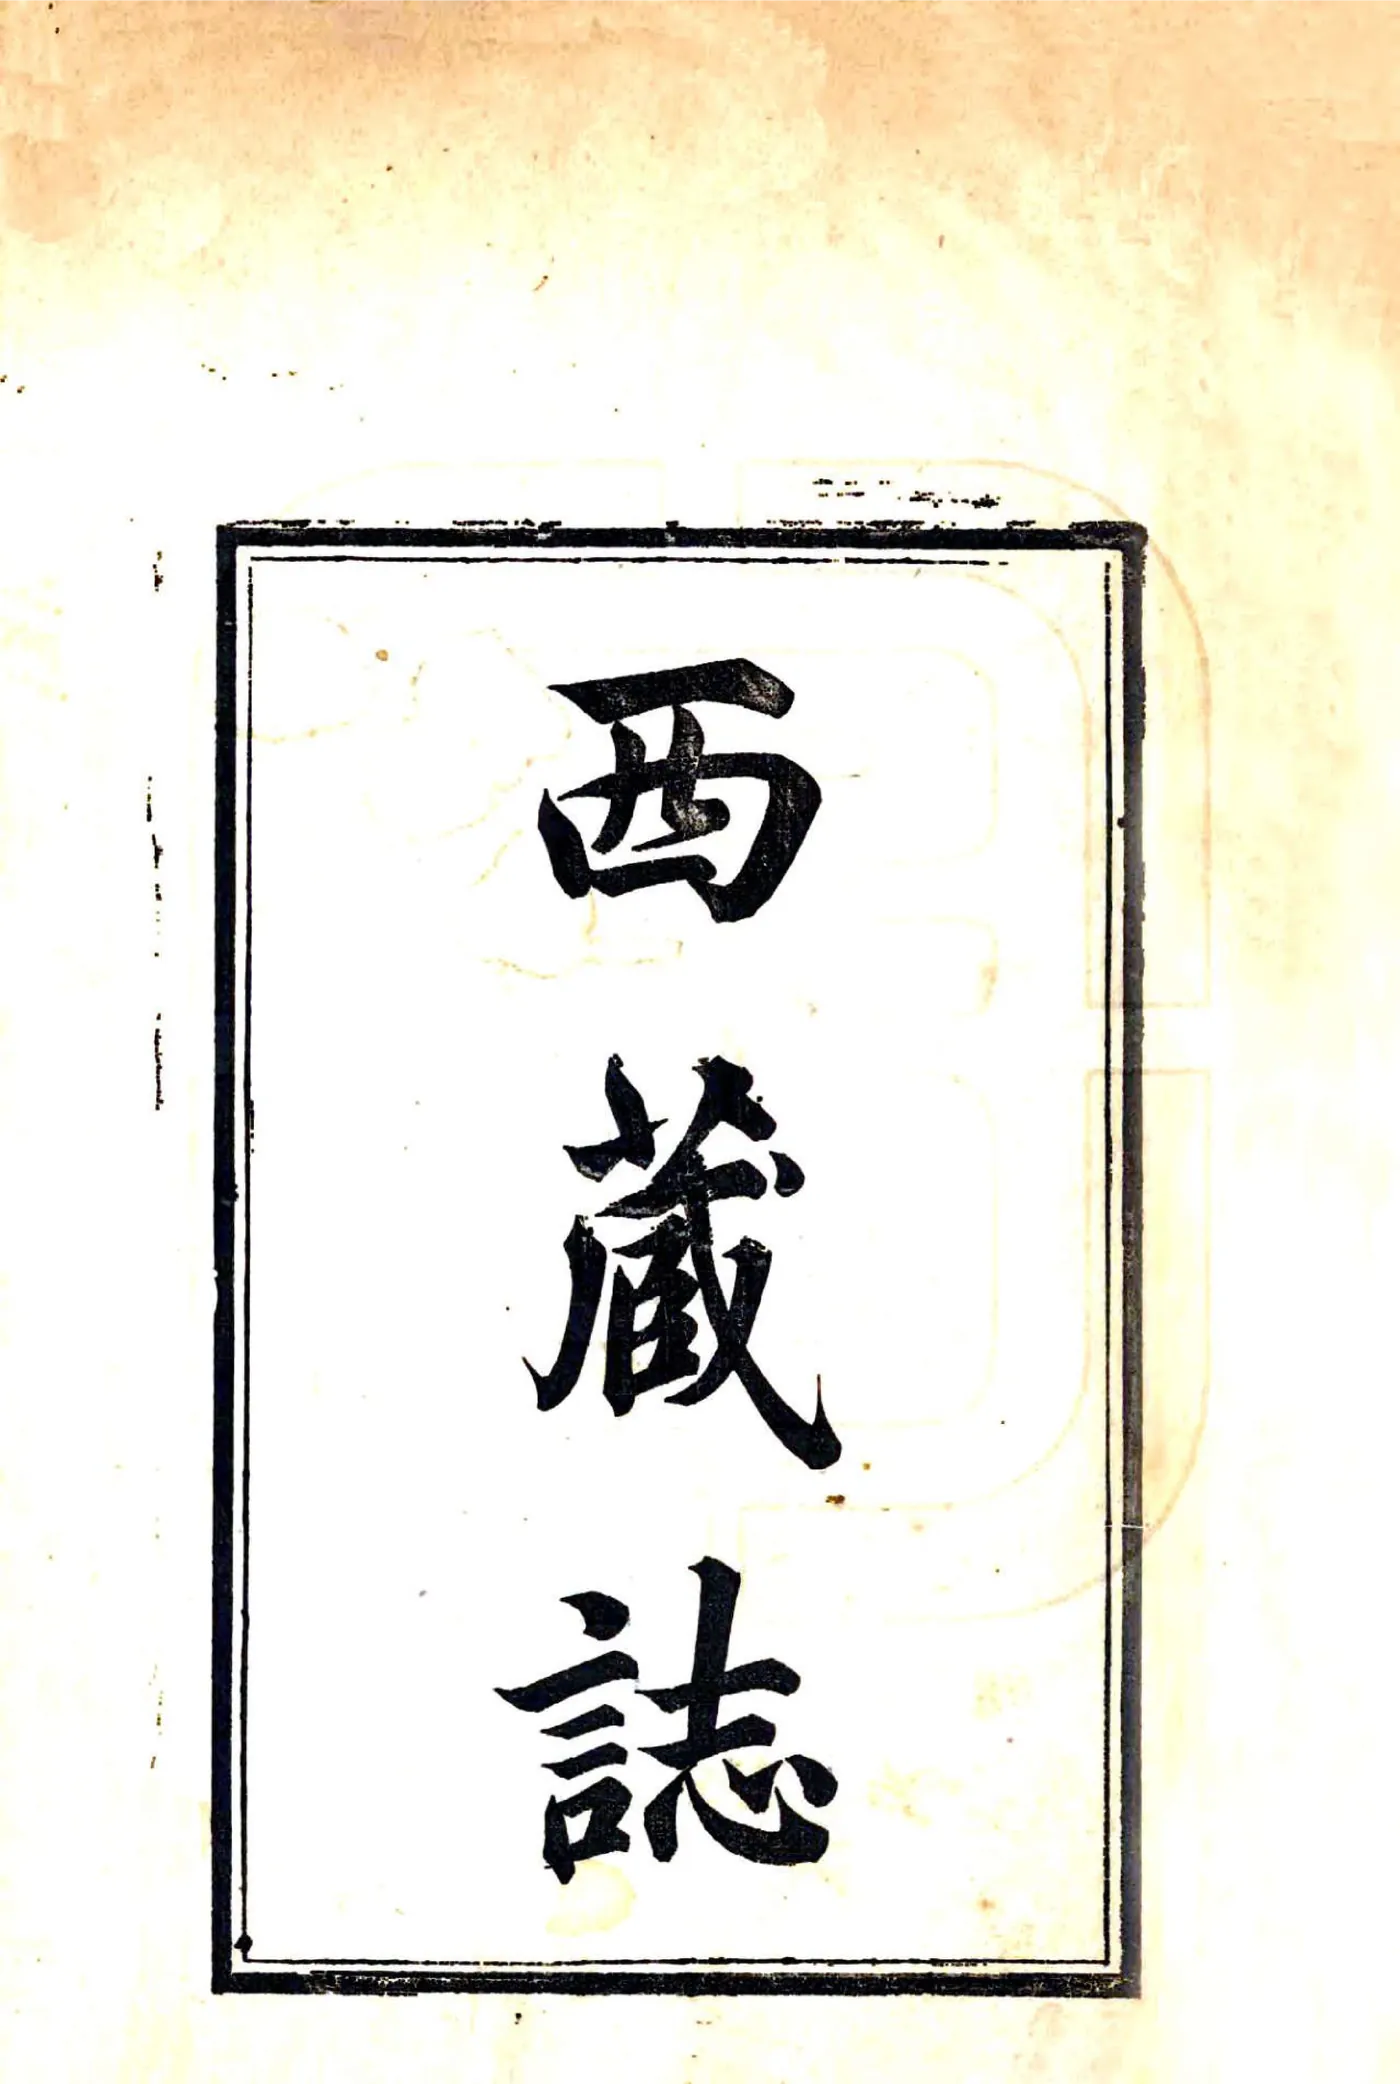 西藏誌